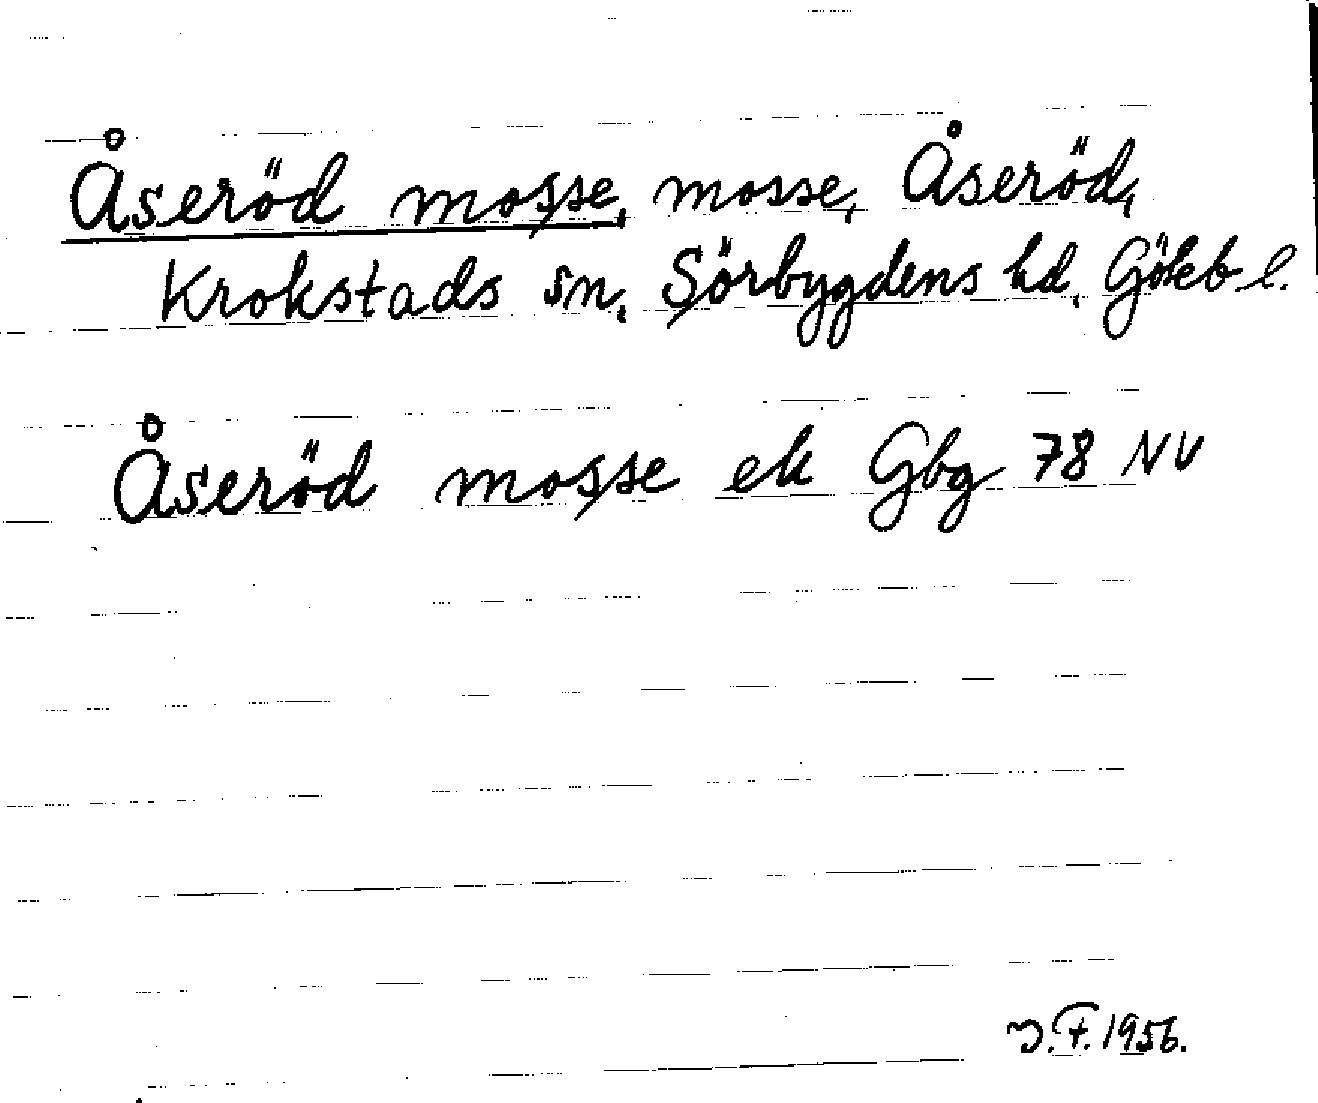 Åseröd mosse, mosse, Åseröd,
Krokstads sn, Sörbygdens hd, Götebl.
Åseröd mosse ek Gbg 78 NV
J.F. 1956.